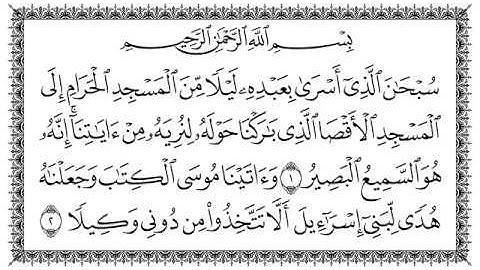 بِسْمِ ٱللَّهِ ٱلرَّحْمَٰنِ ٱلرَّحِيمِ
سُبْحَٰنَ ٱلَّذِىٓ أَسْرَىٰ بِعَبْدِهِۦ لَيْلًا مِّنَ ٱلْمَسْجِدِ ٱلْحَرَامِ إِلَى
ٱلْمَسْجِدِ ٱلْأَقْصَا ٱلَّذِى بَٰرَكْنَا حَوْلَهُۥ لِنُرِيَهُۥ مِنْ ءَايَٰتِنَآ ۚ إِنَّهُۥ
هُوَ ٱلسَّمِيعُ ٱلْبَصِيرُ ۝١ وَءَاتَيْنَا مُوسَى ٱلْكِتَٰبَ وَجَعَلْنَٰهُ
هُدًى لِّبَنِىٓ إِسْرَٰٓءِيلَ أَلَّا تَتَّخِذُوا۟ مِن دُونِى وَكِيلًا ۝٢